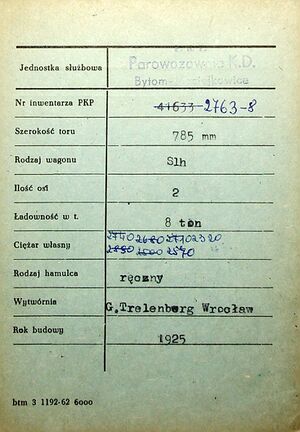 Jednostka służbowa Parowozownia K.D.
Bytom-
Nr inwentarza PKP 41633 2763-8
Szerokość toru 785 mm
Rodzaj wagonu Slh
Ilość osi 2
Ładowność w t. 8 ton
2740 2680 2710 2320
Ciężar własny 2570
Rodzaj hamulca ręczny
Wytwórnia G.Trelenberg Wrocław
Rok budowy 1925
btm 3 1192-62 6000